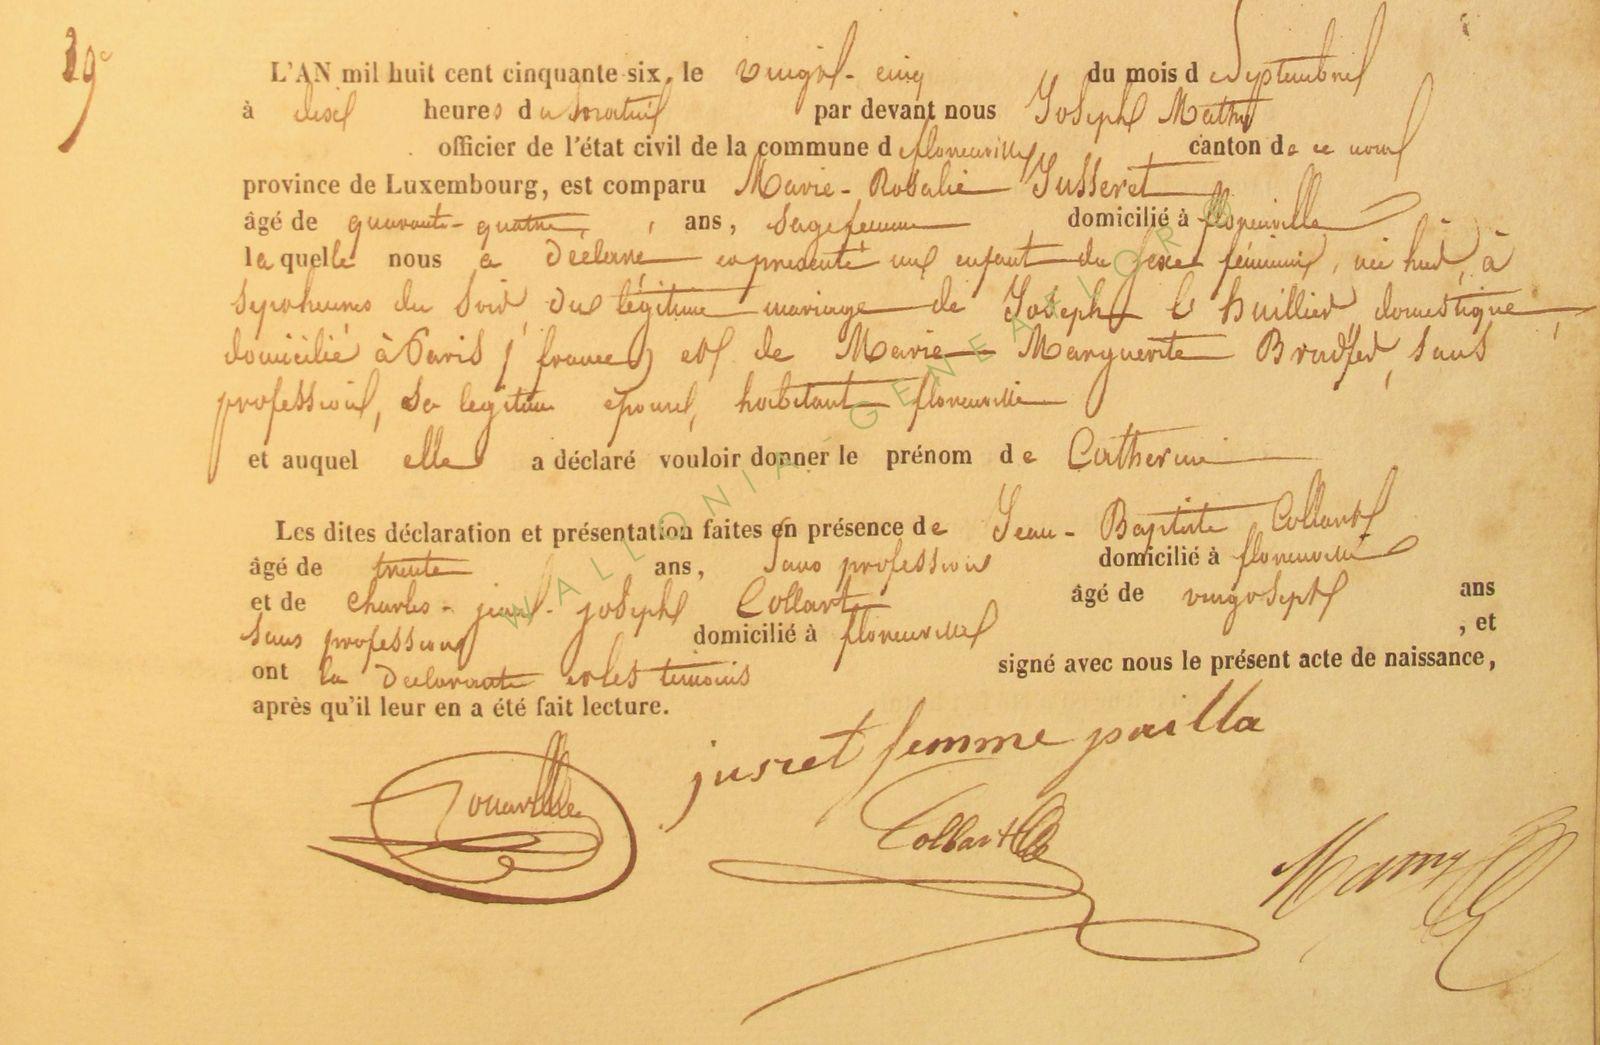 39e
L'AN mil huit cent cinquante six, le vingt-cinq du mois de Septembre
à dix heures du matin par devant nous Joseph Mathy
officier de l'état civil de la commune de florenville canton de ce nom
province de Luxembourg, est comparu Marie-Rosalie Jusseret
âgé de quarante-quatre, ans, sagefemme domicilié à florenville
la quelle nous a déclaré et présenté un enfant du sexe féminin, née hier, à
sept heures du soir du légitime mariage de Joseph l'huillier domestique
domicilié à Paris (france) et de Marie Marguerite sans
profession, sa légitime épouse, habitant florenville
et auquel elle a déclaré vouloir donner le prénom de Catherine
Les dites déclaration et présentation faites en présence de Jean-Baptiste Collart
âgé de trente ans, sans profession domicilié à florenville
et de Charles-jean-joseph Collart âgé de vingt sept ans
sans profession domicilié à florenville, et
ont la Déclarante et les témoins signé avec nous le présent acte de naissance,
après qu'il leur en a été fait lecture.
jusret femme pailla
Collart
WALLONIA GENEALOR